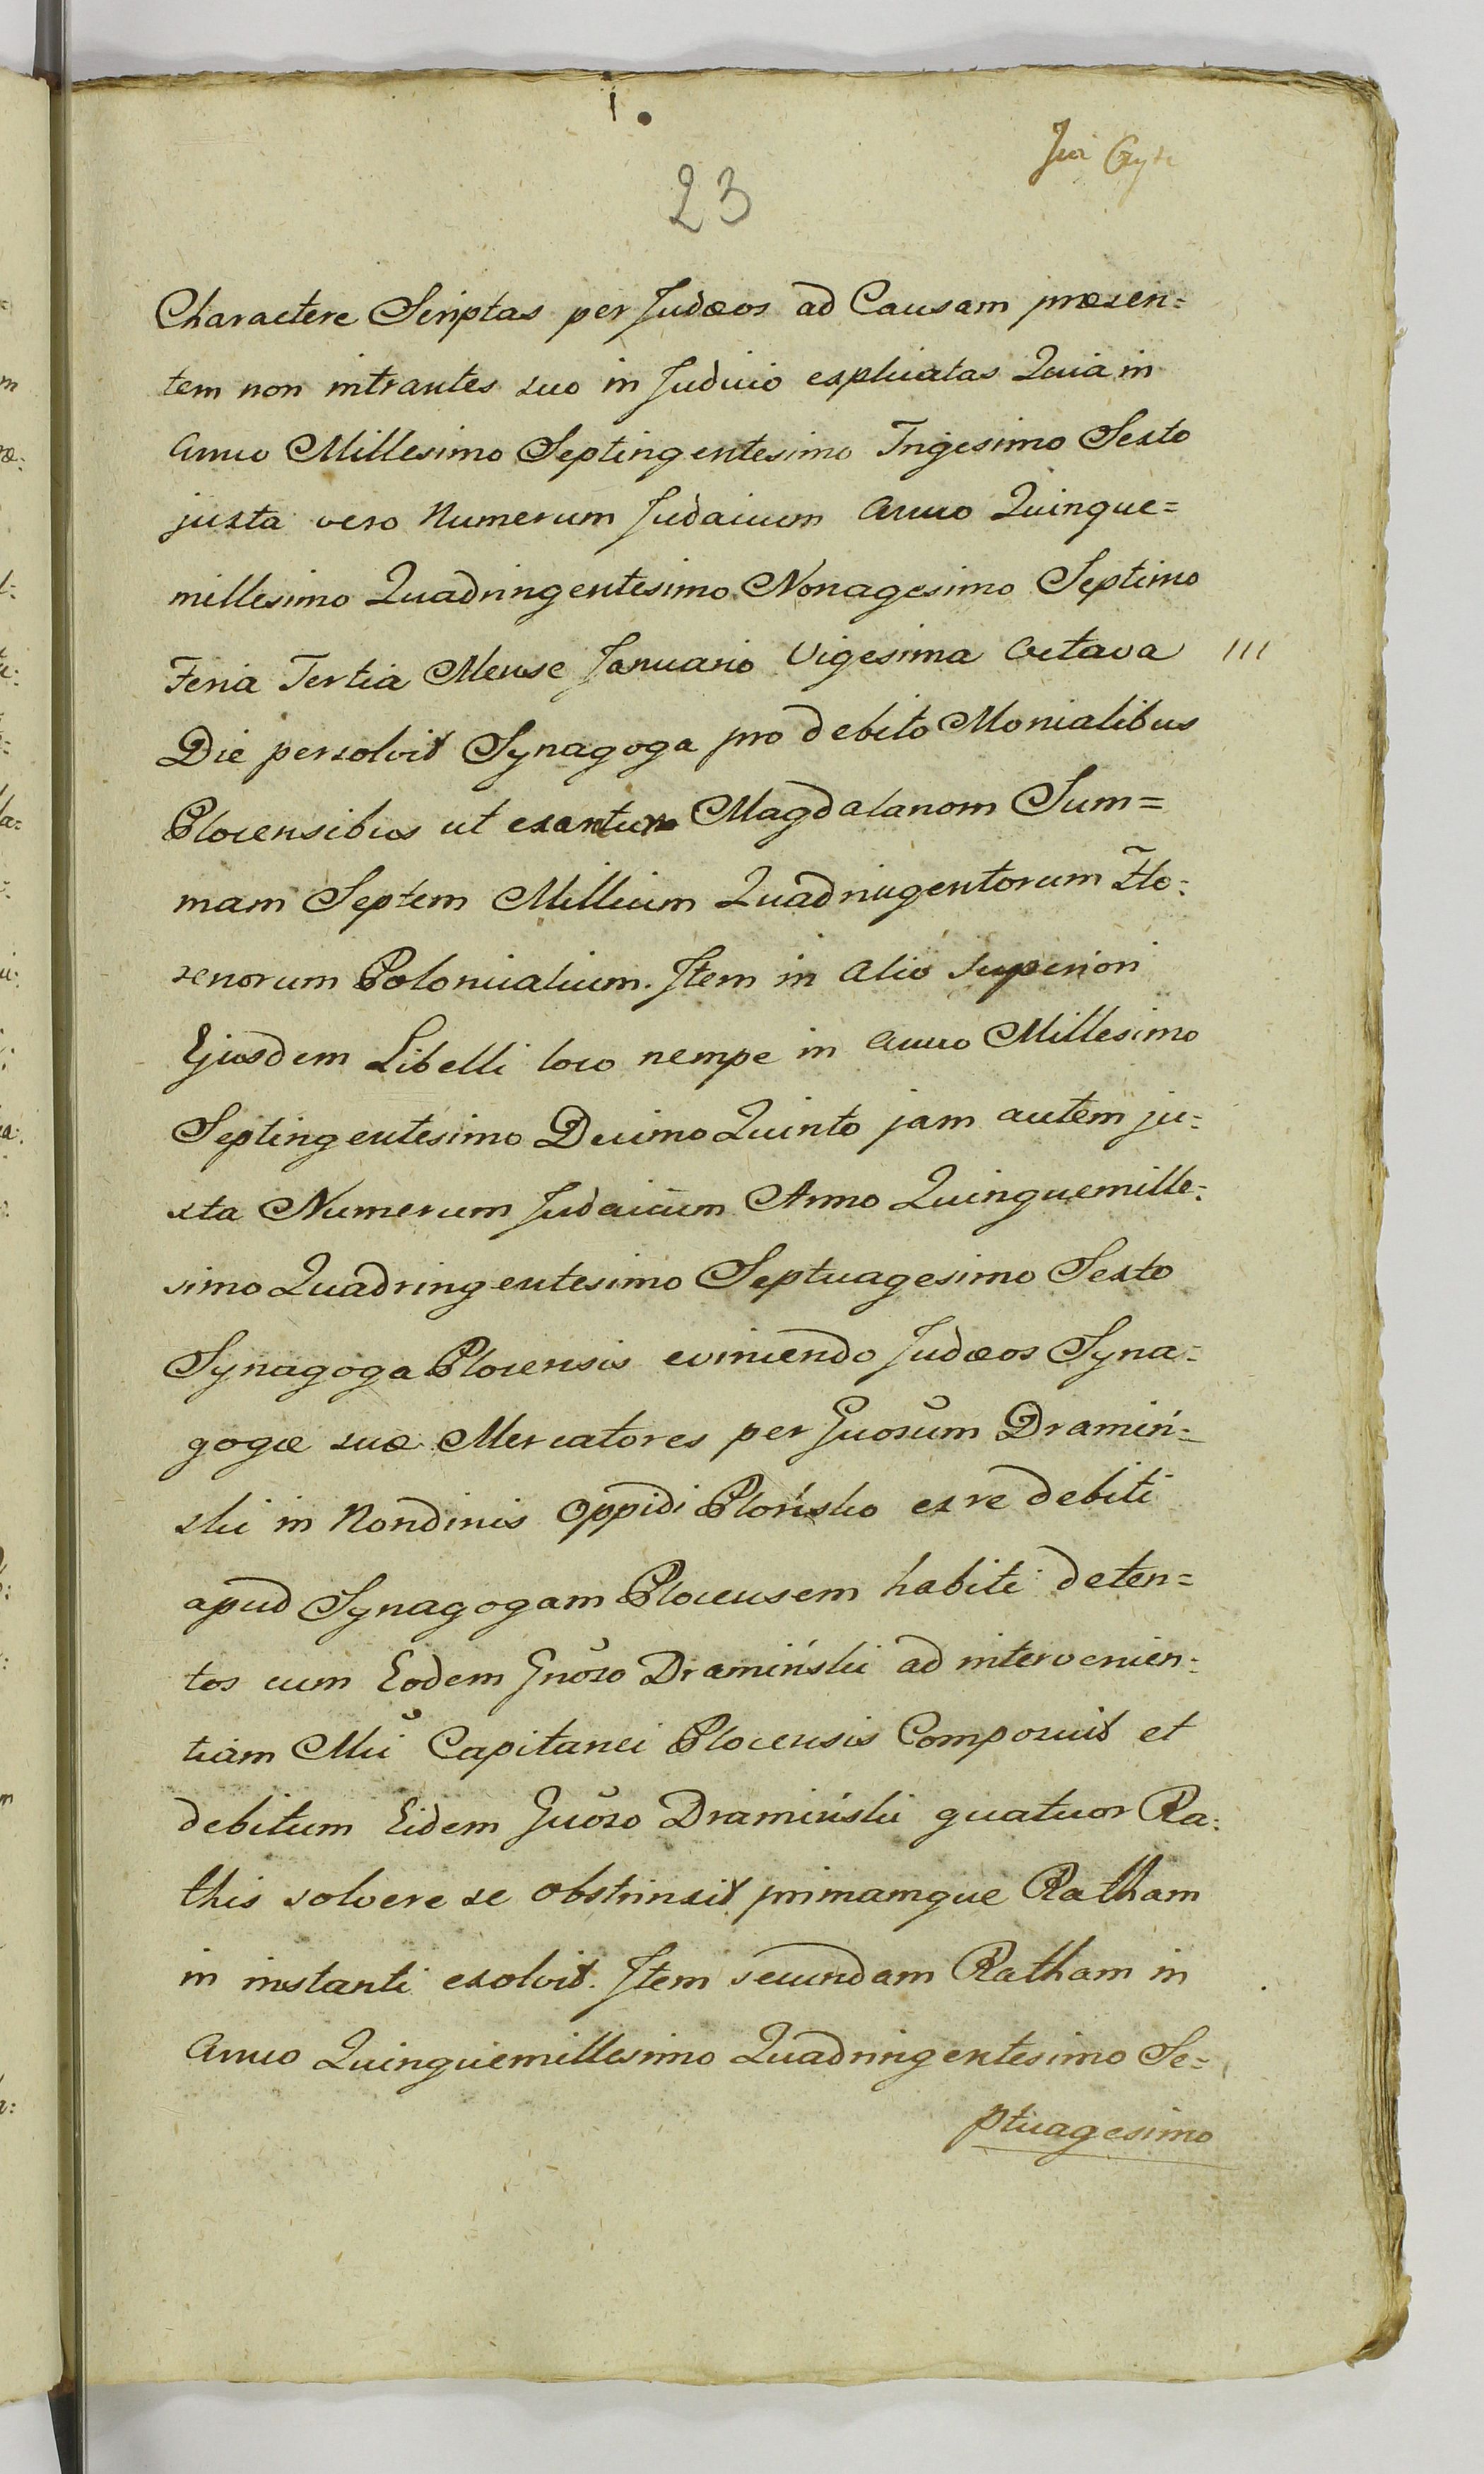 23
Charactere Scriptas per Judæos ad Causam præsen=
tem non intrantes suo in Judicio explicatas Quia in
Anno Millesimo Septingentesimo Trigesimo Sexto
juxta vero Numerum Judaicum Anno Quinque=
millesimo Quadringentesimo Nonagesimo Septimo
Feria Tertia Mense Januario Vigesima Octava
Die persolvit Synagoga pro debito Monialibus
Plocensibus ut exantum Magdalanom Sum=
mam Septem Millium Quadringentorum Flo=
renorum Polonicalium. Item in alio superiori
Ejusdem Libelli loco nempe in Anno Millesimo
Septingentesimo Decimo Quinto jam autem ju=
xta Numerum Judaicum Anno Quinquemille=
simo Quadringentesimo Septuagesimo Sexto
Synagoga Plocensis evincendo Judæos Syna=
gogæ suæ Mercatores per Gnosum Dramiń=
ski in Nondinis Oppidi Płońsko ex re debiti
apud Synagogam Plocensem habiti deten=
tos cum Eodem Gnoso Dramiński ad intervenien=
tiam Mci Capitanei Plocensis Composuit et
debitum Eidem Gnoso Dramiński quatuor Ra=
this solvere se obstrinxit primamque Ratham
in instanti exolvit. Item secundam Ratham in
Anno Quinquemillesimo Quadringentesimo Se=
ptuagesimo